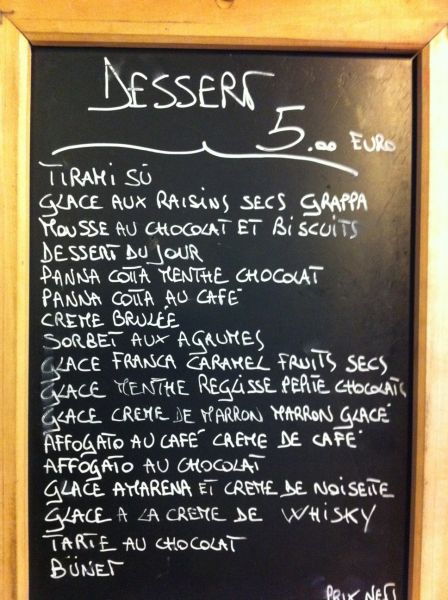 DESSERT
5.00 EURO
TIRAMI SÙ
GLACE AUX RAISINS SECS GRAPPA
MOUSSE AU CHOCOLAT ET BISCUITS
DESSERT DU JOUR
PANNA COTTA MENTHE CHOCOLAT
PANNA COTTA AU CAFÉ
CREME BRULÉE
SORBET AUX AGRUMES
GLACE FRANCA CARAMEL FRUITS SECS
GLACE MENTHE REGLISSE PEPITE CHOCOLATS
GLACE CREME DE MARRON MARRON GLACÉ
AFFOGATO AU CAFÉ CREME DE CAFÉ
AFFOGATO AU CHOCOLAT
GLACE AMARENA ET CREME DE NOISETTE
GLACE A LA CREME DE WHISKY
TARTE AU CHOCOLAT
BÜNET
PRIX NETS